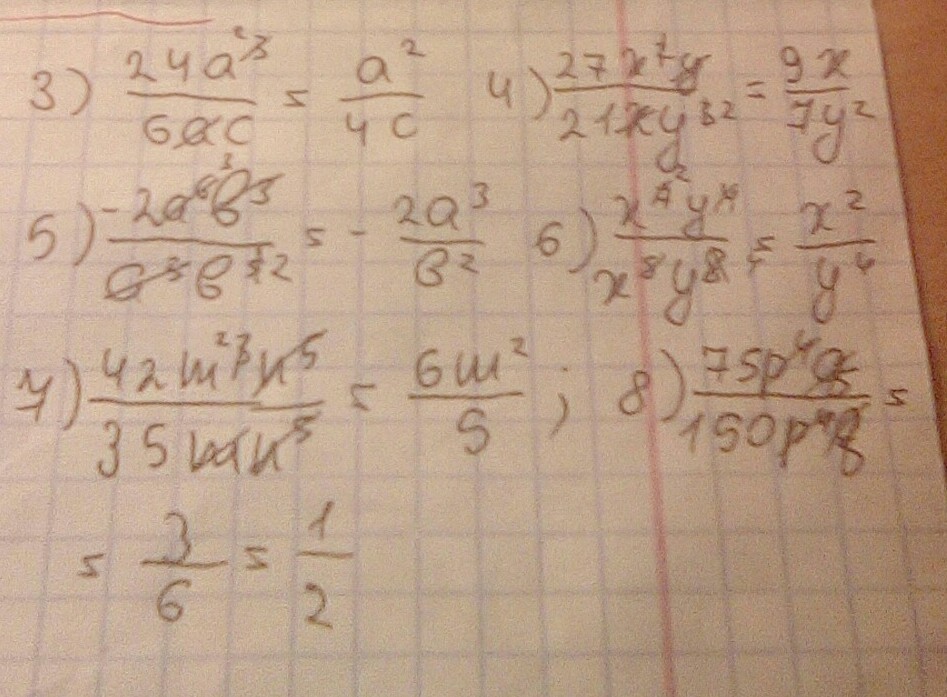 3) 24a²³/6ac = a²/4c 4) 27x⁷y/21xy³² = 9x/7y²
5) -2a⁶³b³/a³b⁵² = -2a³/b² 6) x⁴²y⁴/x⁸y⁸ = x²/y⁴
7) 42m²³n⁵/35mn⁵ = 6m²/5 ; 8) 75p⁴q/150p⁴q =
= 3/6 = 1/2